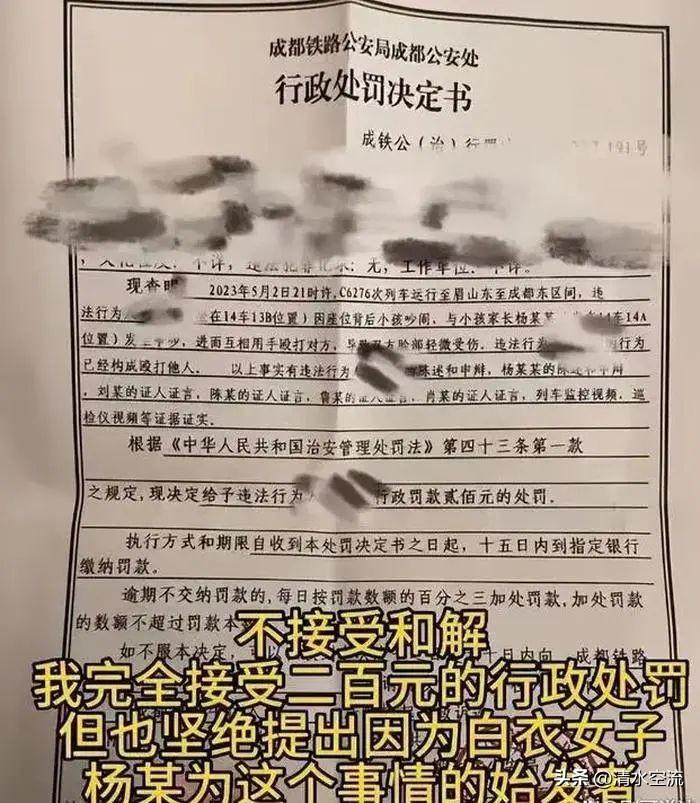 成都铁路公安局成都公安处
行政处罚决定书
成铁公（治）行罚 191号
不详，违法犯罪记录：无，工作单位：不详。
现查明 2023年5月2日21时许，C6276次列车运行至眉山东至成都东区间，违
法行为 坐在14车13B位置）因座位背后小孩吵闹，与小孩家长杨某某 14车14A
位置）发生争吵，进而互相用手殴打对方，导致双方脸部轻微受伤。违法行为 的行为
已经构成殴打他人。 以上事实有违法行为 陈述和申辩，杨某某的陈述和申辩
，刘某的证人证言，陈某的证人证言，曾某的证人证言，肖某的证人证言，列车监控视频，巡
检仪视频等证据证实。
根据《中华人民共和国治安管理处罚法》第四十三条第一款
之规定，现决定给予违法行为 行政罚款贰佰元的处罚.
执行方式和期限自收到本处罚决定书之日起，十五日内到指定银行
缴纳罚款。
逾期不交纳罚款的，每日按罚款数额的百分之三加处罚款，加处罚款
的数额不超过罚款本
如不服本决定，可以 十日内向 成都铁路
不接受和解
我完全接受二百元的行政处罚
但也坚绝提出因为白衣女子
杨某为这个事情的始发者
头条@清水空流